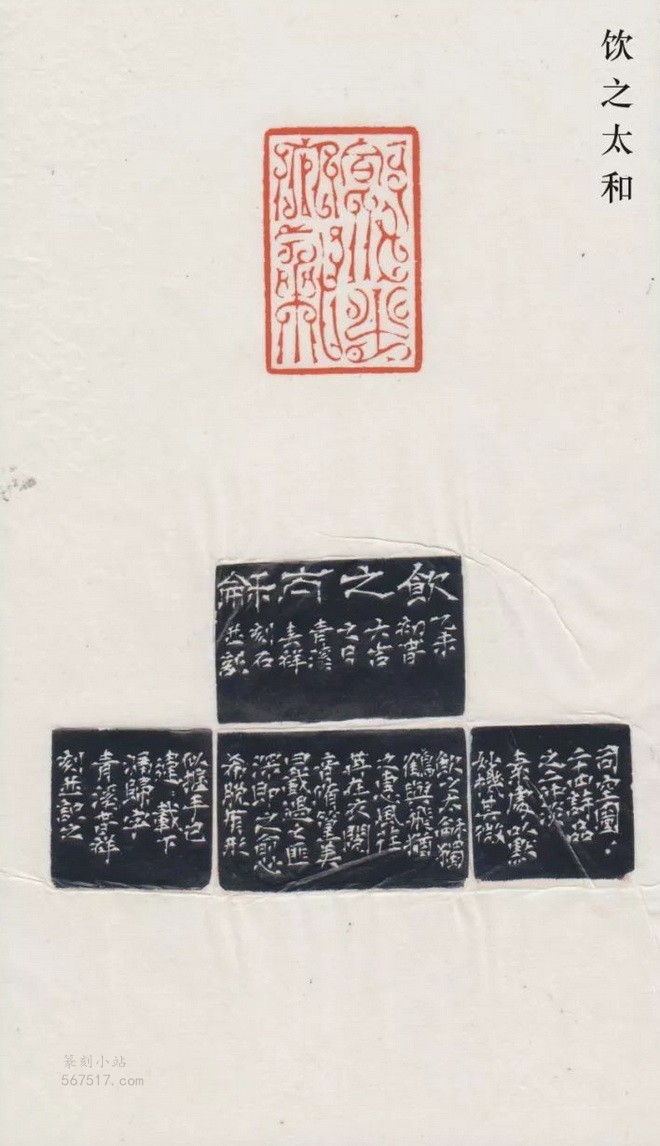 饮之太和
飲之太龢
乙未
初春
大吉
之日
青溪
春祥
刻石
司空圖
二十四詩品
之二沖淡
素處以默
妙機其微
飲之太龢獨
鶴與飛猶
之惠風荏
苒在衣閱
音脩篁美
曰載遇之匪
深即之愈
希脫有形
似握手已
違 載下
漏歸字
青溪春祥
刻並記之
篆刻小站
567517.com